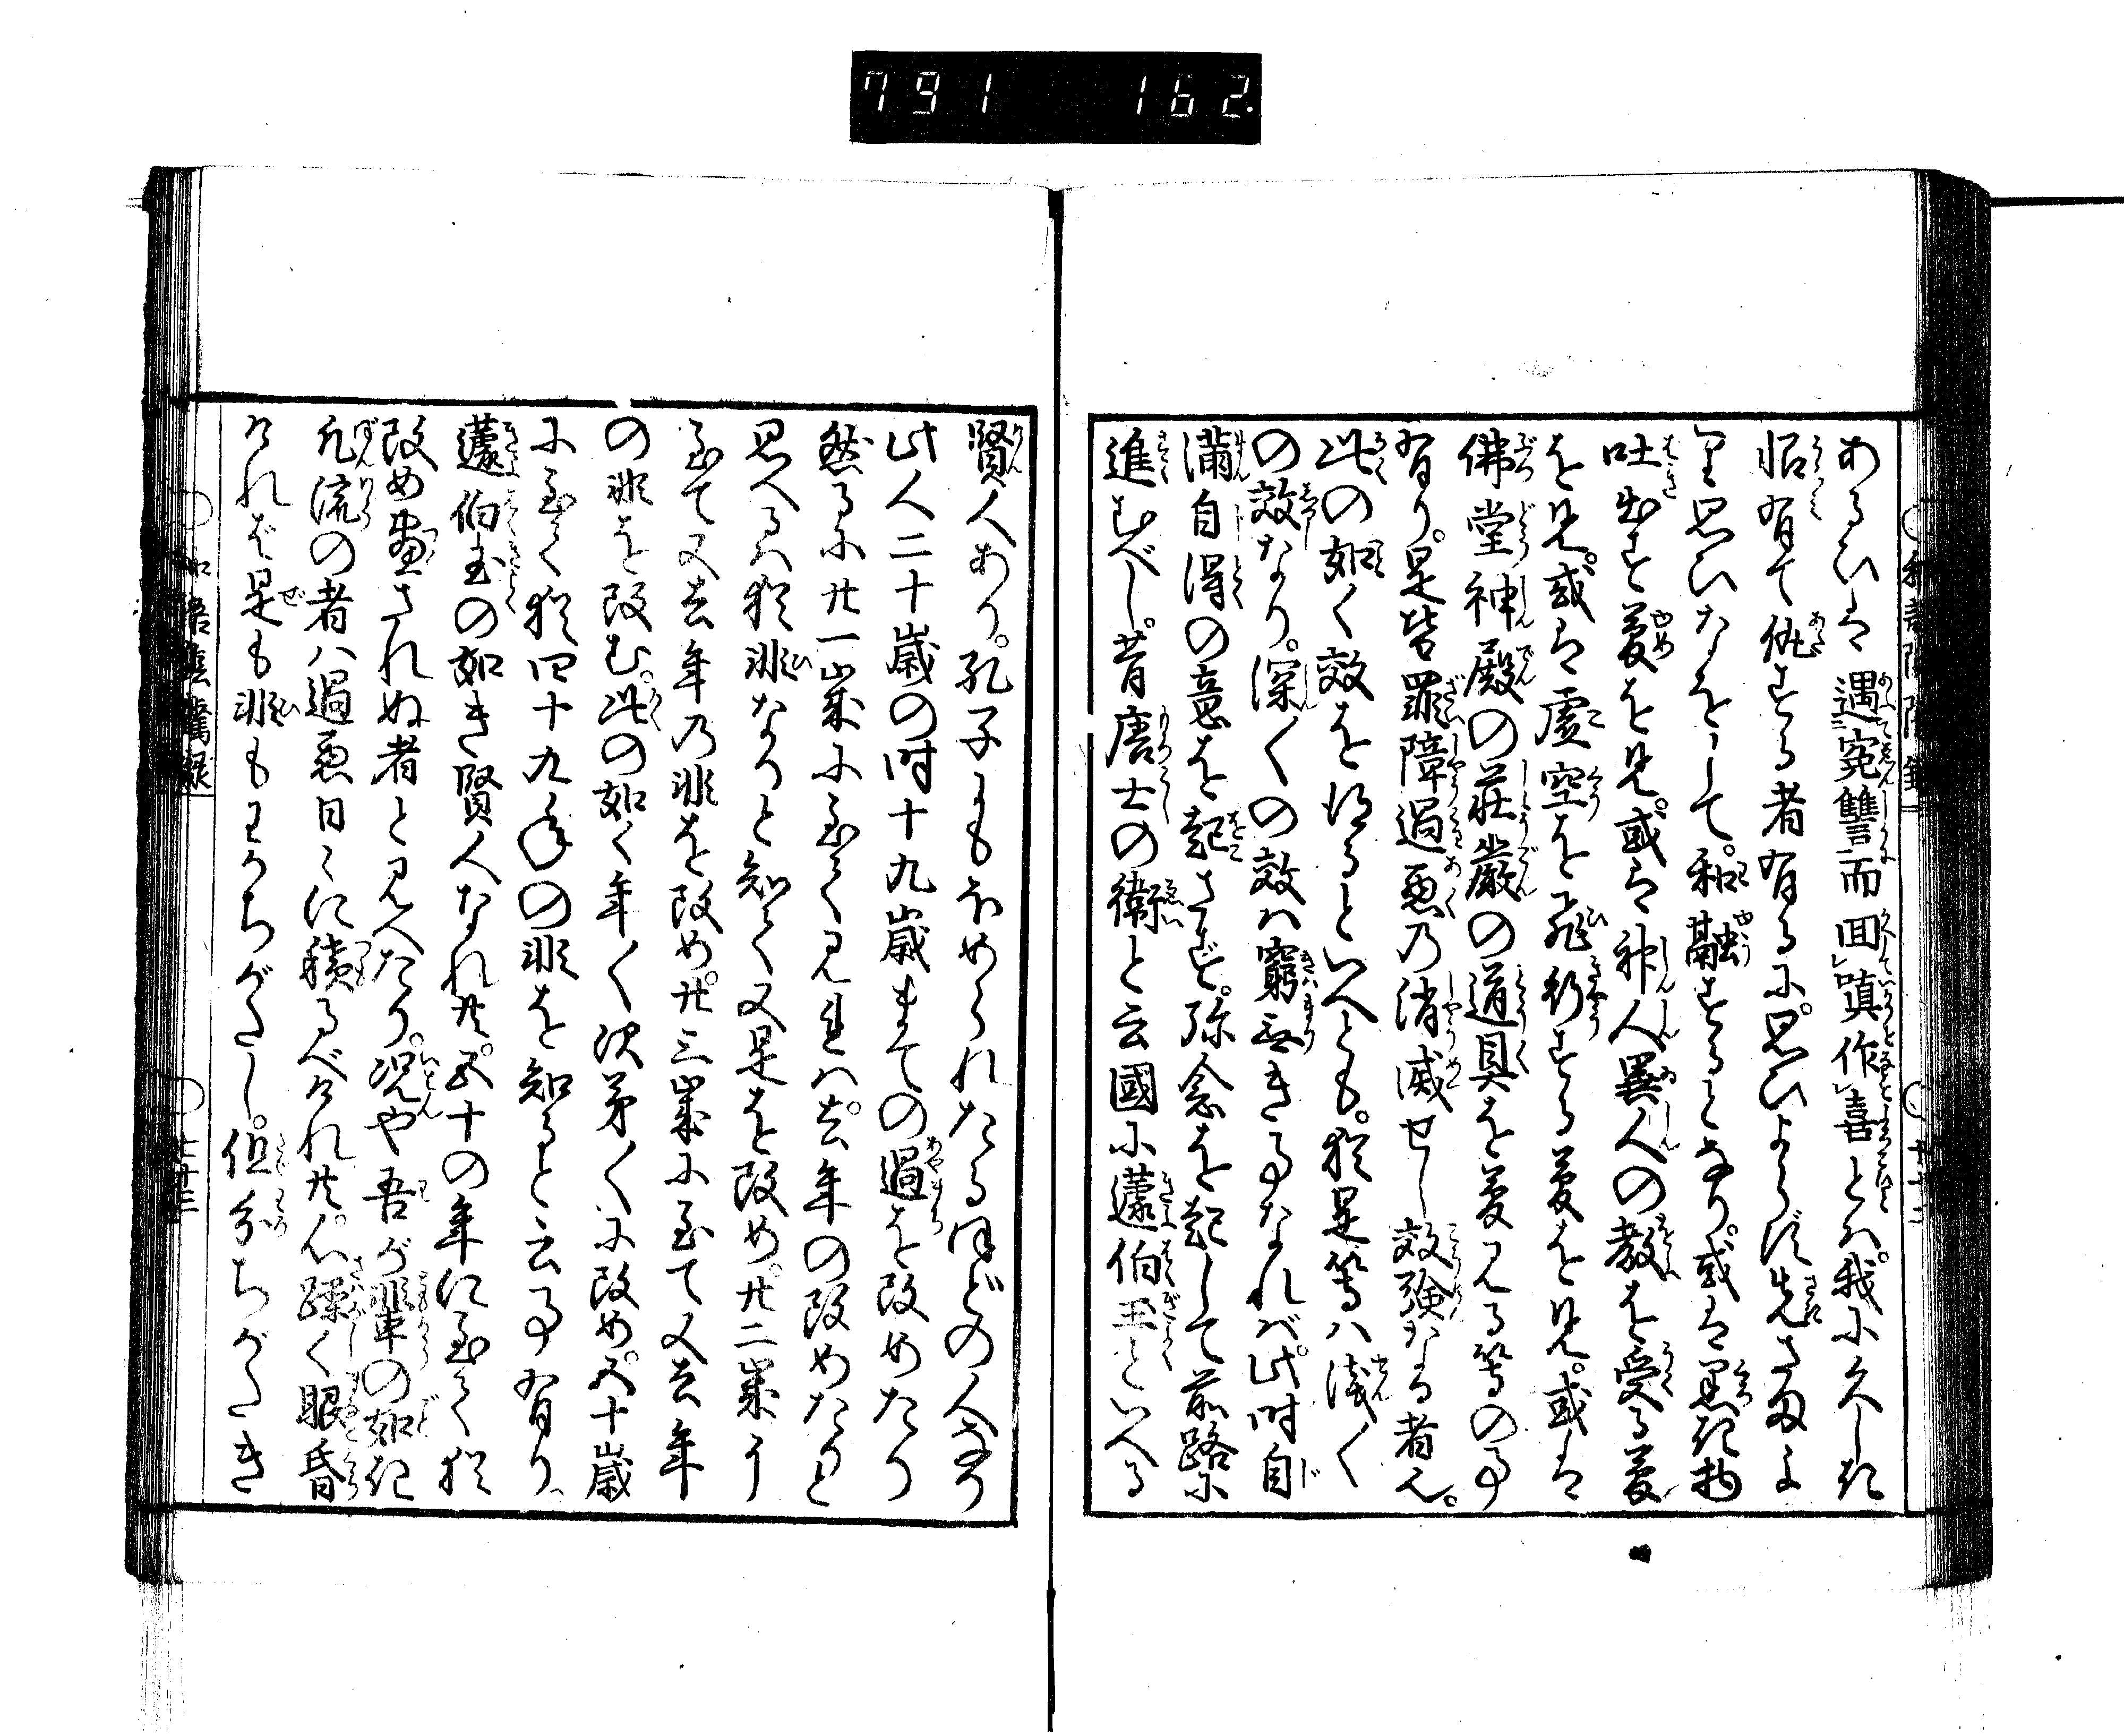 791 162.
あるひは遇寃讐而回嗔作喜とハ。我に久しき
恨有て仇する者有るに。思ひよらず先さまよ
り思ひなをして。和融するとなり。或は黒き物
吐出す夢を見。或は神人異人の教を受る夢
を見。或は虚空を飛行する夢を見。或は
佛堂神殿の荘嚴の道具を夢見る等の事
有り。是皆罪障過悪の消滅せし效験なる者也。
此の如く效を得るといへとも。猶是等ハ淺く
の效なり。深くの效ハ窮無き事なれバ。此時自
滿自得の意を起さず。弥念を起して前路に
進むべし。昔唐土の衛と云國に蘧伯玉といへる
賢人あり。孔子にもほめられたるほどの人なり
此人二十歳の时十九歳までの過を改めたり
然るに廿一歳に至て見れハ。去年の改めたりと
思へるハ猶非なりと知て又是を改め。廿二歳に
至て又去年の非を改め。廿三歳に至て又去年
の非を改む。此の如く年〱次第〱に改め。五十歳
に至て猶四十九年の非を知ると云事有り。
蘧伯玉の如き賢人なれ共。五十の年に至て猶
改め盡されぬ者と見へたり。况や吾が輩の如き
凡流の者ハ過悪日〻に積るべけれ共。心躁く眼昏
けれど是も非もわかちがたし。但分ちがたき